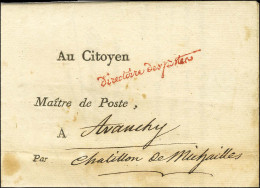 Au Citoyen
Directoire des postes
Maître de Poste,
A Avanchy
Par Chatillon de Michailles